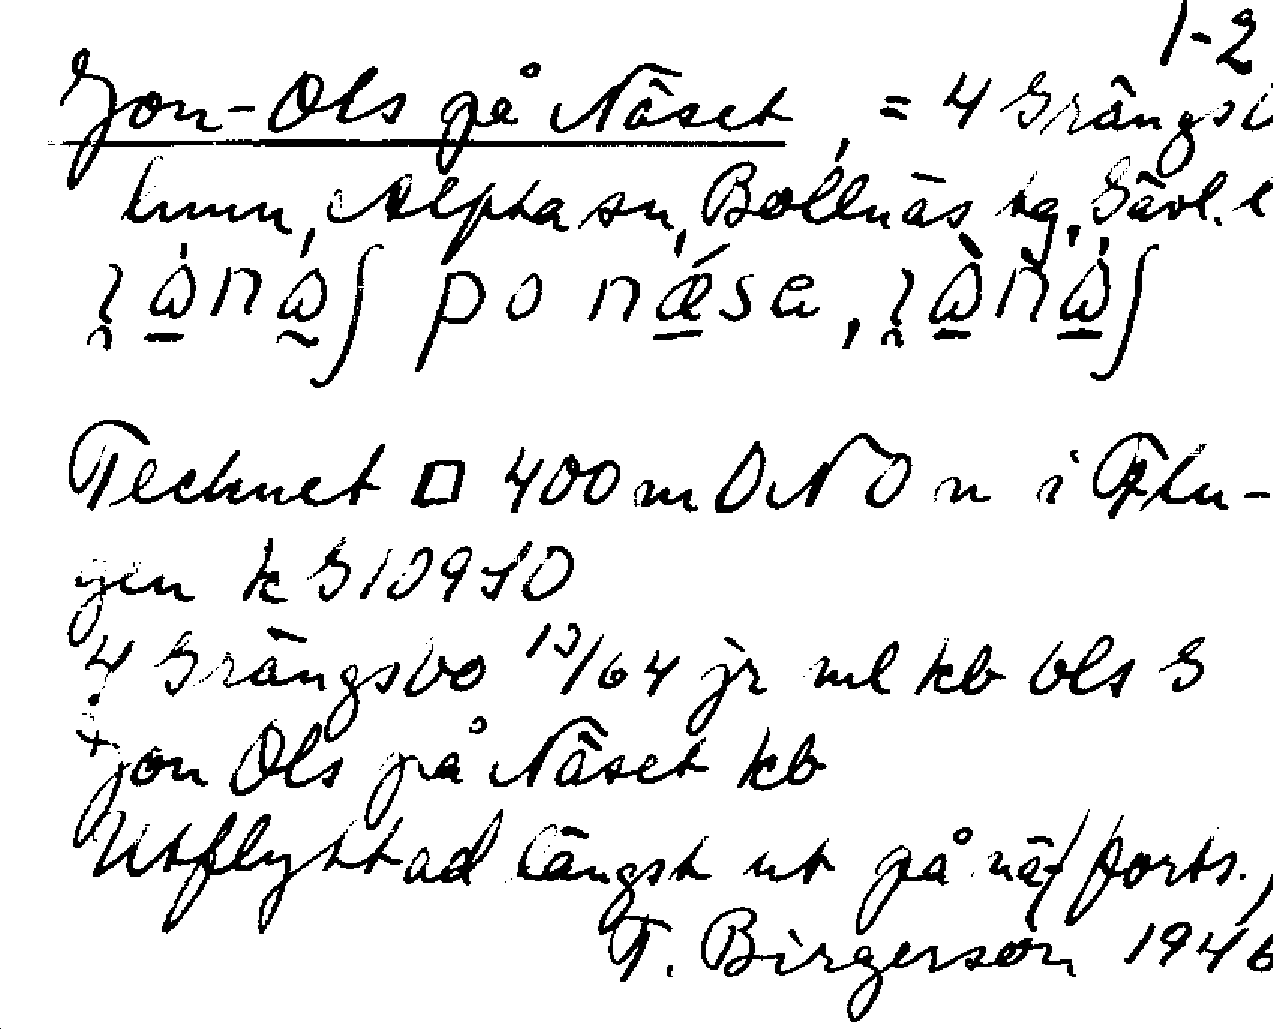 1-2
Jon-Ols på Näset, = 4 Grängsb
hmn, Alfta sn, Bollnäs tg, Gävl. l
po næsa,
Tecknet □ 400 m ONO n i Flu-
gen k G 10950
4 Grängsbo 13/64 jr ml kb bls G
Jon Ols på Näset kb
Utflyttad längst ut på nä- /forts./
T. Birgerson 1946